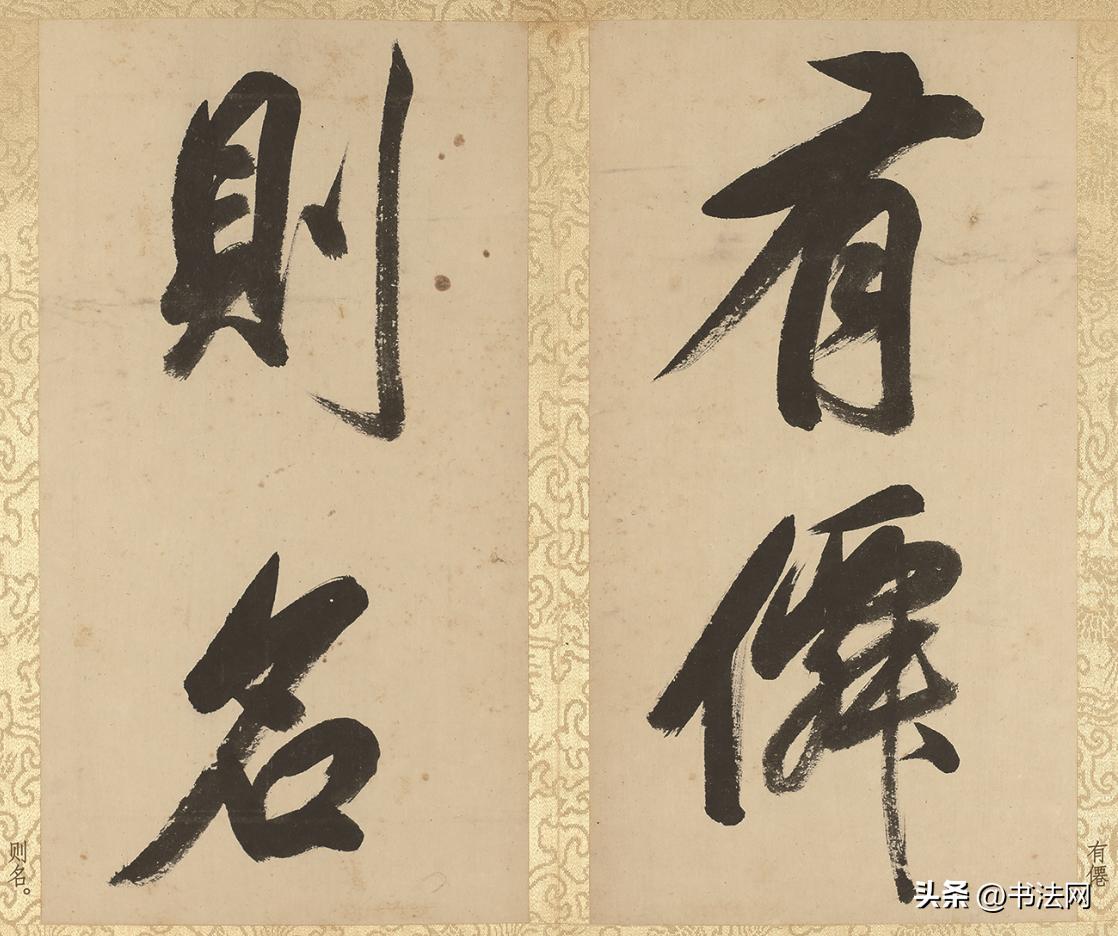 有僊
則名
有僊
则名。
头条 @书法网